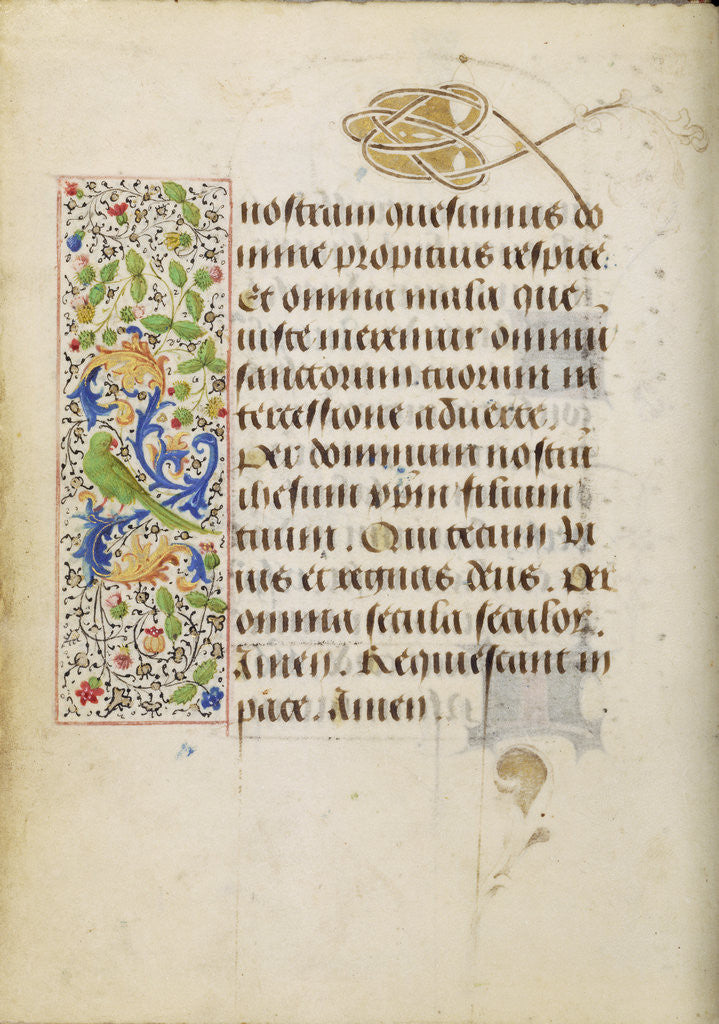 nostram quesumus do
mine propitius respice.
Et omnia mala que
iuste meremur omniu
sanctorum tuorum in
tercessione aduerte.
Per dominum nostru
ihesum xpm filium
tuum. Qui tecum vi
uis et regnas deus. Per
omnia secula seculor.
Amen. Requiescant in
pace. Amen.